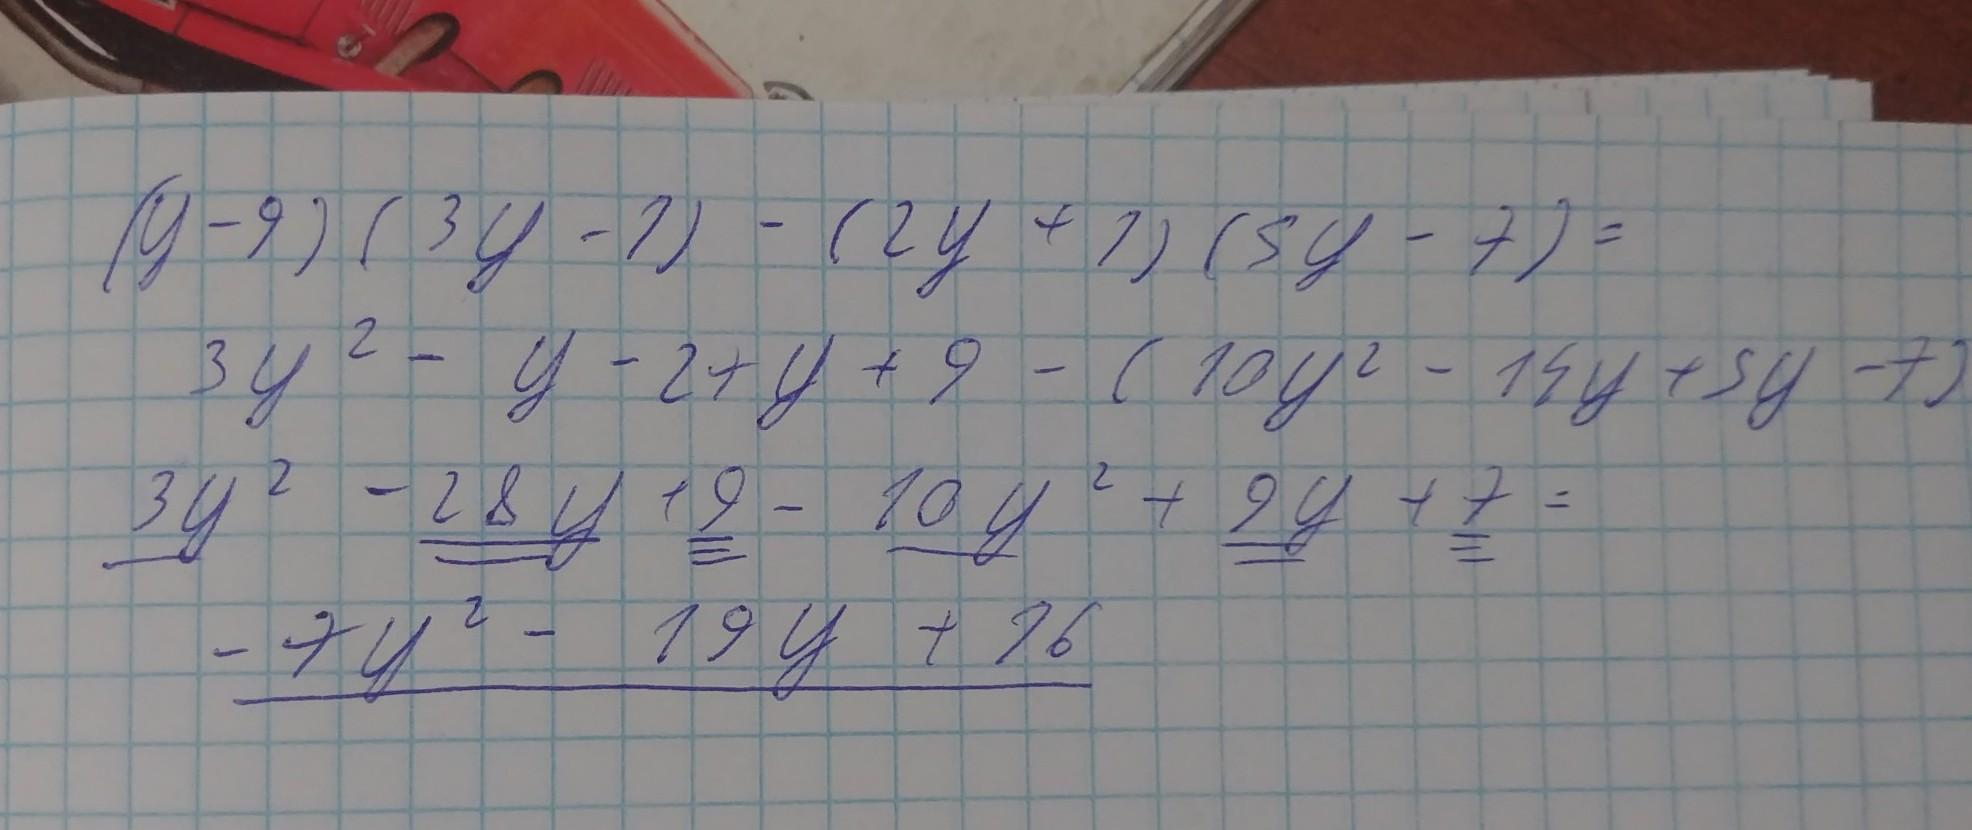 (y-9)(3y-1)-(2y+1)(5y-7)=
3y²-y-27y+9-(10y²-14y+5y-7)
3y²-28y+9-10y²+9y+7=
-7y²-19y+16